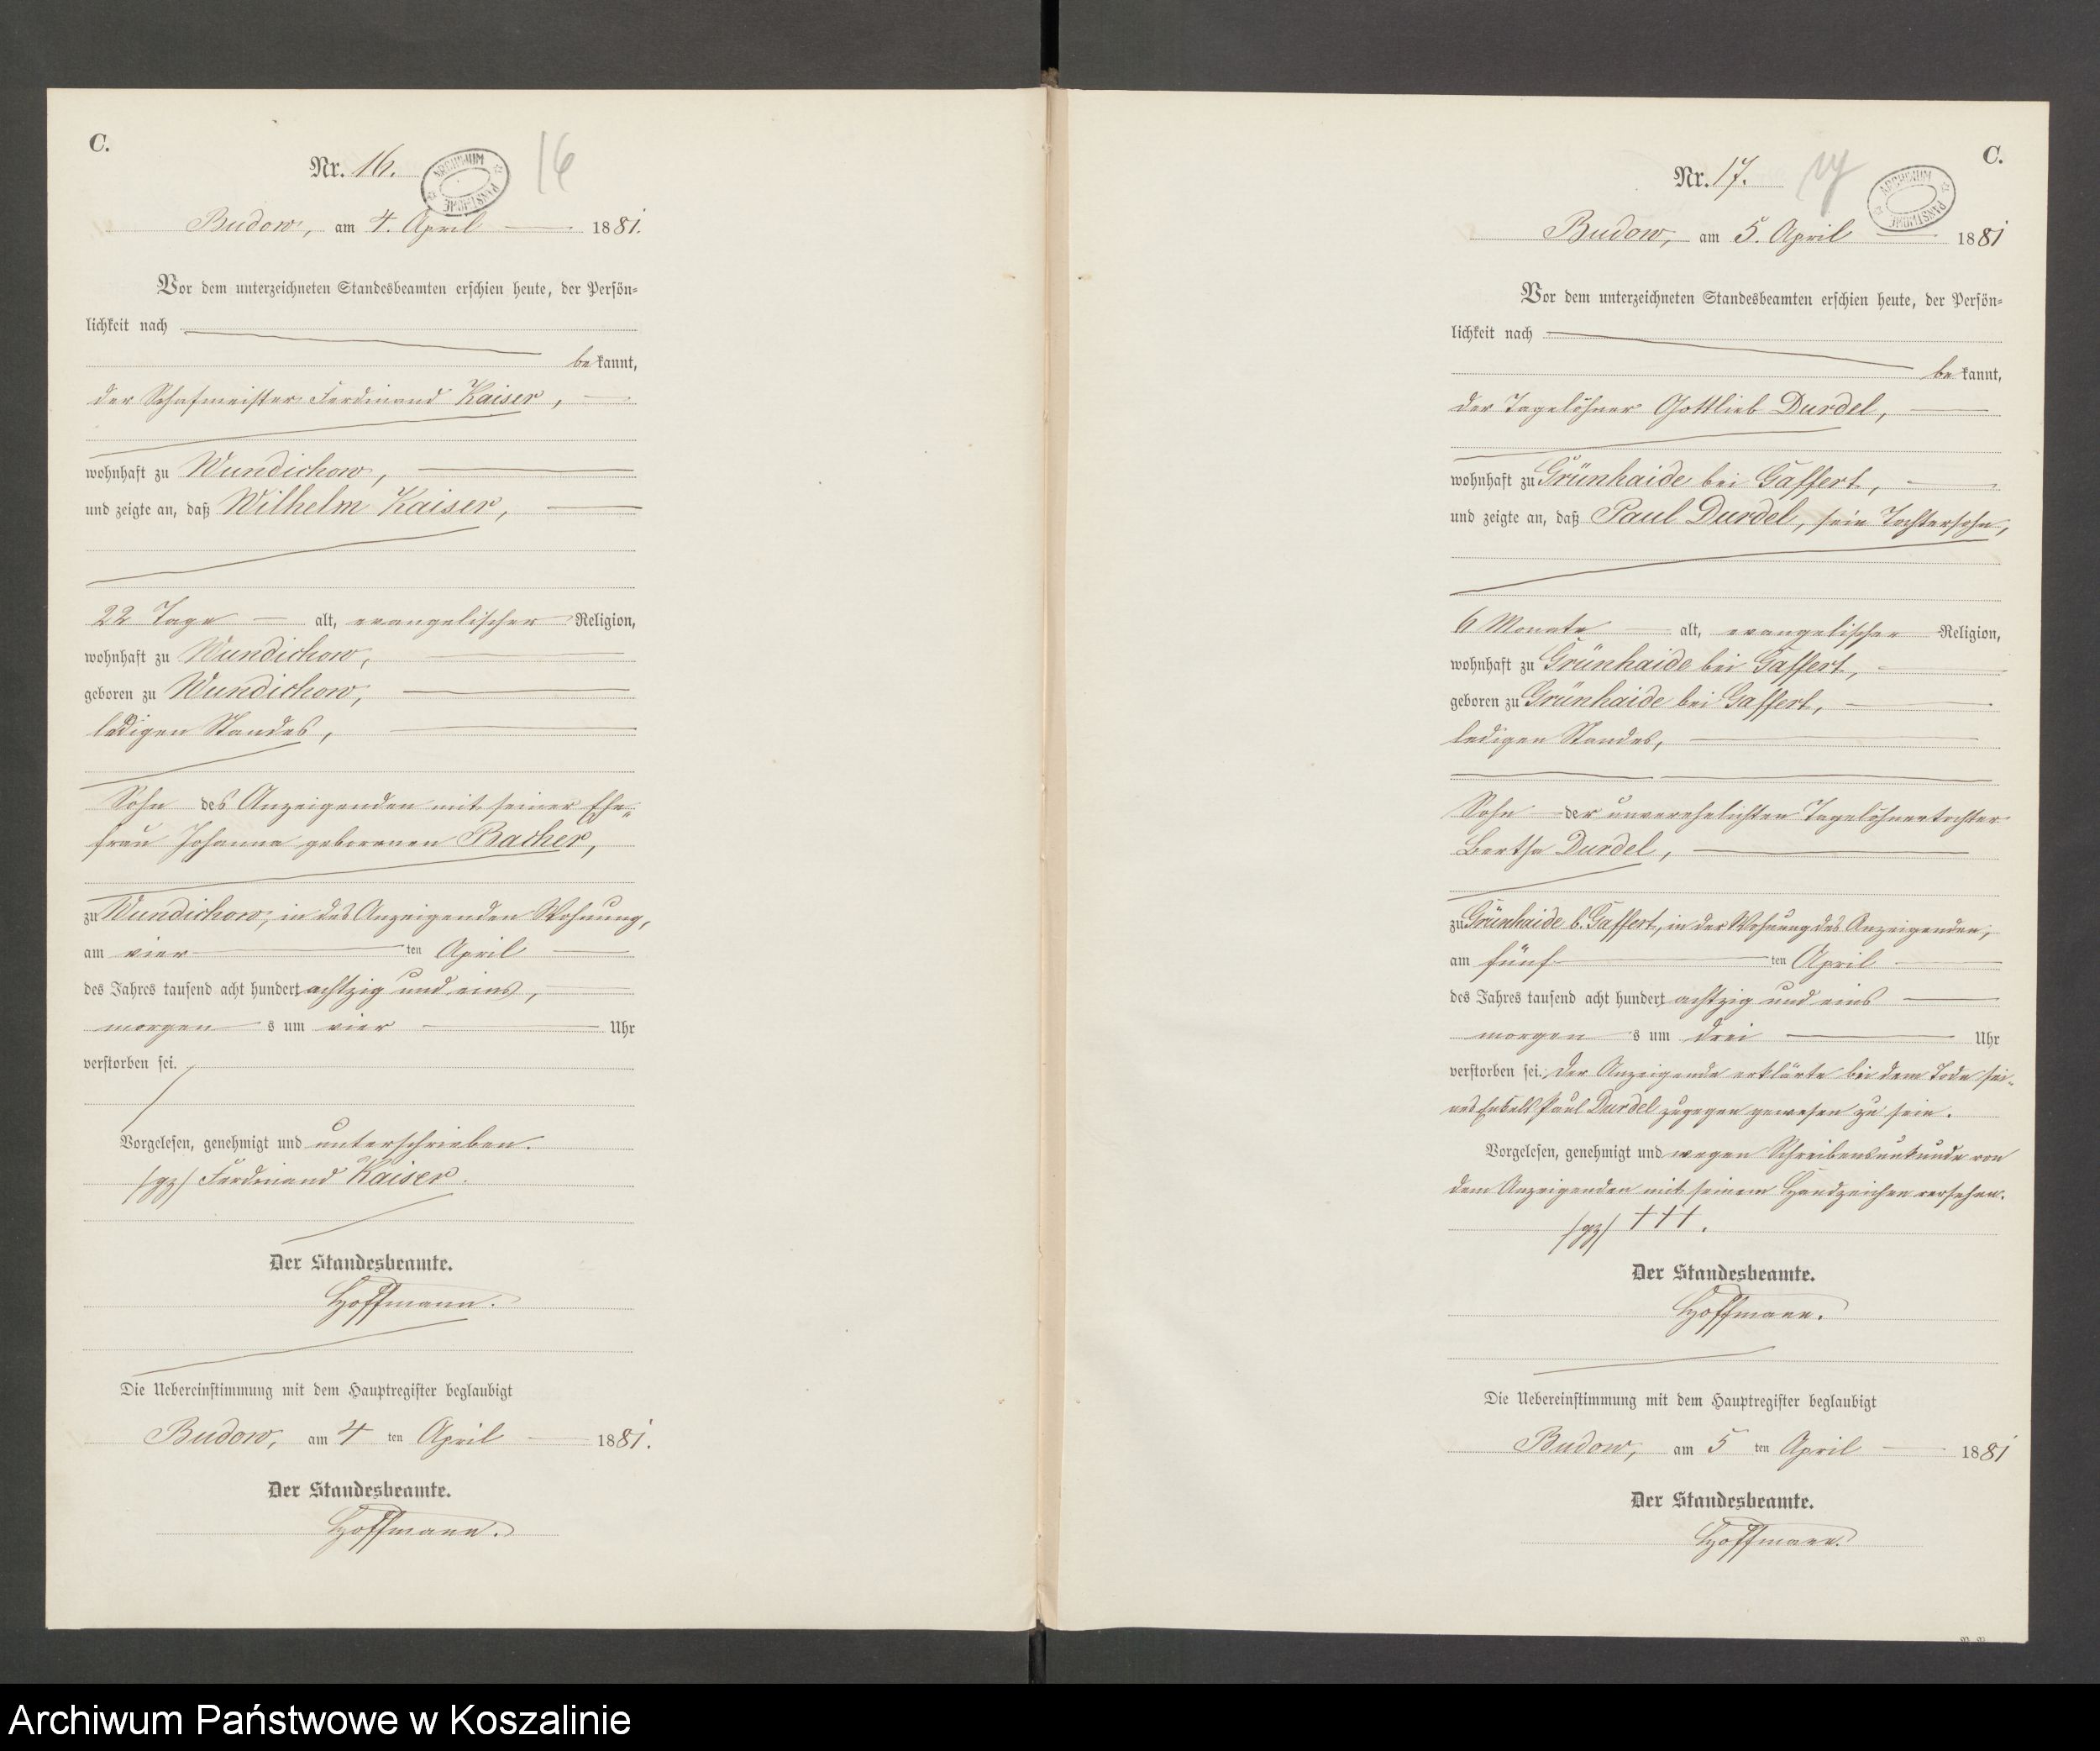 C.
Nr. 16.
ARCHIWUM PAŃSTWOWE
16
Budow, am 4. April 1881.
Vor dem unterzeichneten Standesbeamten erschien heute, der Persön-
lichkeit nach
bekannt,
der Schafmeister Ferdinand Kaiser,
wohnhaft zu Wundichow,
und zeigte an, daß Wilhelm Kaiser,
22 Tage alt, evangelischer Religion,
wohnhaft zu Wundichow,
geboren zu Wundichow,
ledigen Standes,
Sohn des Anzeigenden mit seiner Ehe-
frau Johanna geborenen Bacher,
zu Wundichow, in des Anzeigenden Wohnung,
am vier ten April
des Jahres tausend acht hundert achtzig und eins,
morgen s um vier Uhr
verstorben sei.
Vorgelesen, genehmigt und unterschrieben.
/gz/ Ferdinand Kaiser.
Der Standesbeamte.
Hoffmann.
Die Uebereinstimmung mit dem Hauptregister beglaubigt
Budow, am 4 ten April 1881.
Der Standesbeamte.
Hoffmann.
C.
Nr. 17.
17
ARCHIWUM PAŃSTWOWE
Budow, am 5. April 1881
Vor dem unterzeichneten Standesbeamten erschien heute, der Persön-
lichkeit nach
bekannt,
der Tagelöhner Gottlieb Durdel,
wohnhaft zu Grünhaide bei Gaffert,
und zeigte an, daß Paul Durdel, sein Tochtersohn,
6 Monate alt, evangelischer Religion,
wohnhaft zu Grünhaide bei Gaffert,
geboren zu Grünhaide bei Gaffert,
ledigen Standes,
Sohn der unverehelichten Tagelöhnertochter
Bertha Durdel,
zu Grünhaide b. Gaffert, in der Wohnung des Anzeigenden,
am fünf ten April
des Jahres tausend acht hundert achtzig und eins
morgen s um drei Uhr
verstorben sei. Der Anzeigende erklärte bei dem Tode sei-
nes Enkels Paul Durdel zugegen gewesen zu sein.
Vorgelesen, genehmigt und wegen Schreibensunkunde von
dem Anzeigenden mit seinem Handzeichen versehen.
/gz/ +++.
Der Standesbeamte.
Hoffmann.
Die Uebereinstimmung mit dem Hauptregister beglaubigt
Budow, am 5 ten April 1881
Der Standesbeamte.
Hoffmann.
Archiwum Państwowe w Koszalinie